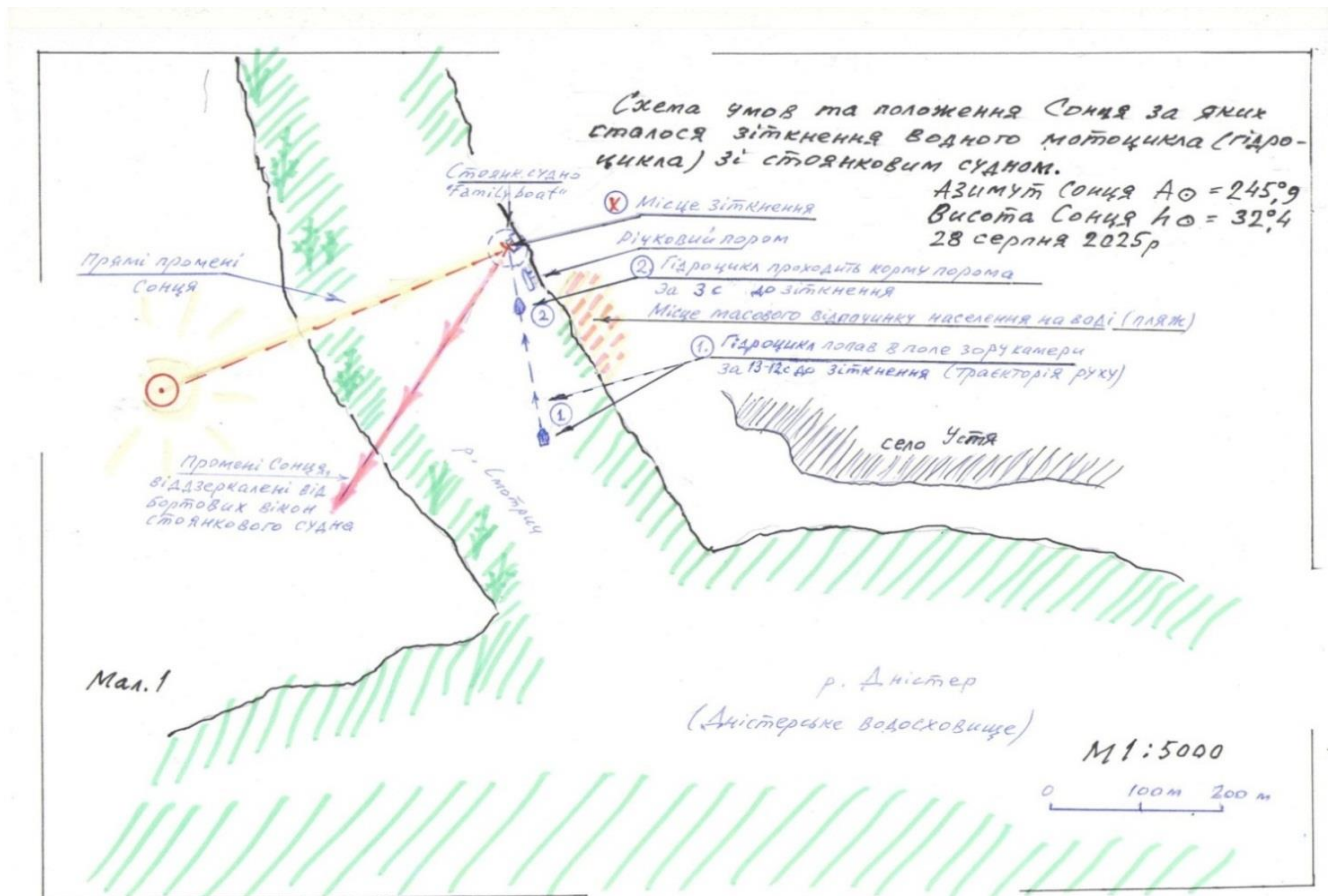 Схема умов та положення Сонця за яких
сталося зіткнення водного мотоцикла (гідро-
цикла) зі стоянковим судном.
Азимут Сонця А☉ = 245°,9
Висота Сонця h☉ = 32°,4
28 серпня 2025р
Стоянк. судно
"Family boat"
X Місце зіткнення
Річковий пором
2 Гідроцикл проходить корму порома
за 3 с до зіткнення
Місце масового відпочинку населення на воді (пляж)
1. Гідроцикл попав в поле зору камери
за 13-12с до зіткнення (траєкторія руху)
Прямі промені
Сонця
2
1
село Устя
Промені Сонця,
віддзеркалені від
бортових вікон
стоянкового судна
р. Смотрич
Мал. 1
р. Дністер
(Дністерське водосховище)
М 1:5000
0 100м 200 м